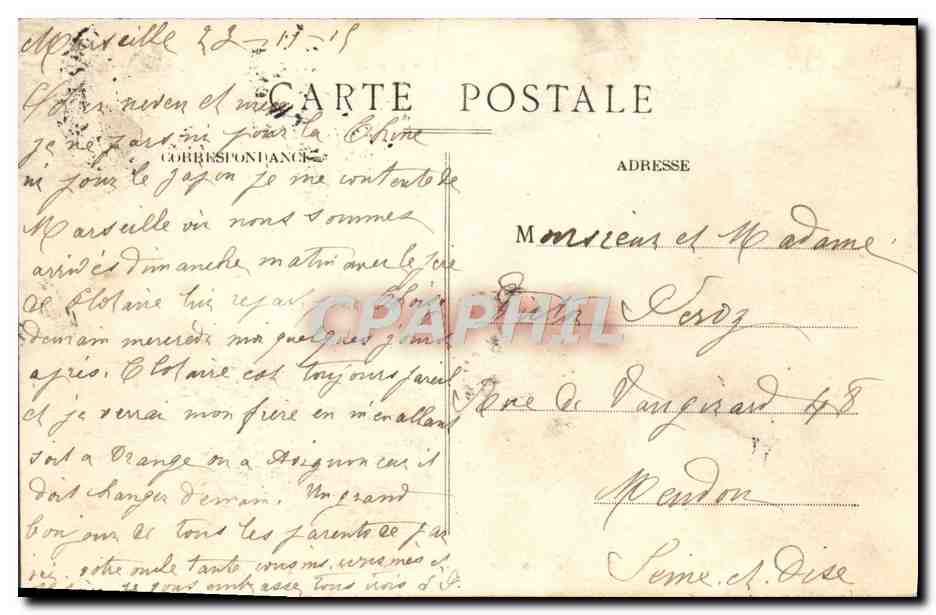 Marseille 23-11-15
CARTE POSTALE
neveu et
je ne pars ni pour la Chine
CORRESPONDANCE
ni pour le Japon je me contente de
Marseille où nous sommes
arrivés dimanche matin avec le père
de Clotaire lui repart
demain mercredi moi quelques jours
après. Clotaire est toujours pareil
et je verrai mon frère en m'en allant
soit a Orange ou a Avignon car il
doit changer demain. Un grand
bonjour de tous les parents de par
ici. votre oncle tante cousins cousines et
vous embrasse tous trois
ADRESSE
Monsieur et Madame
Rue de Vaugirard 48
Meudon
Seine et Oise
CPAPHIL